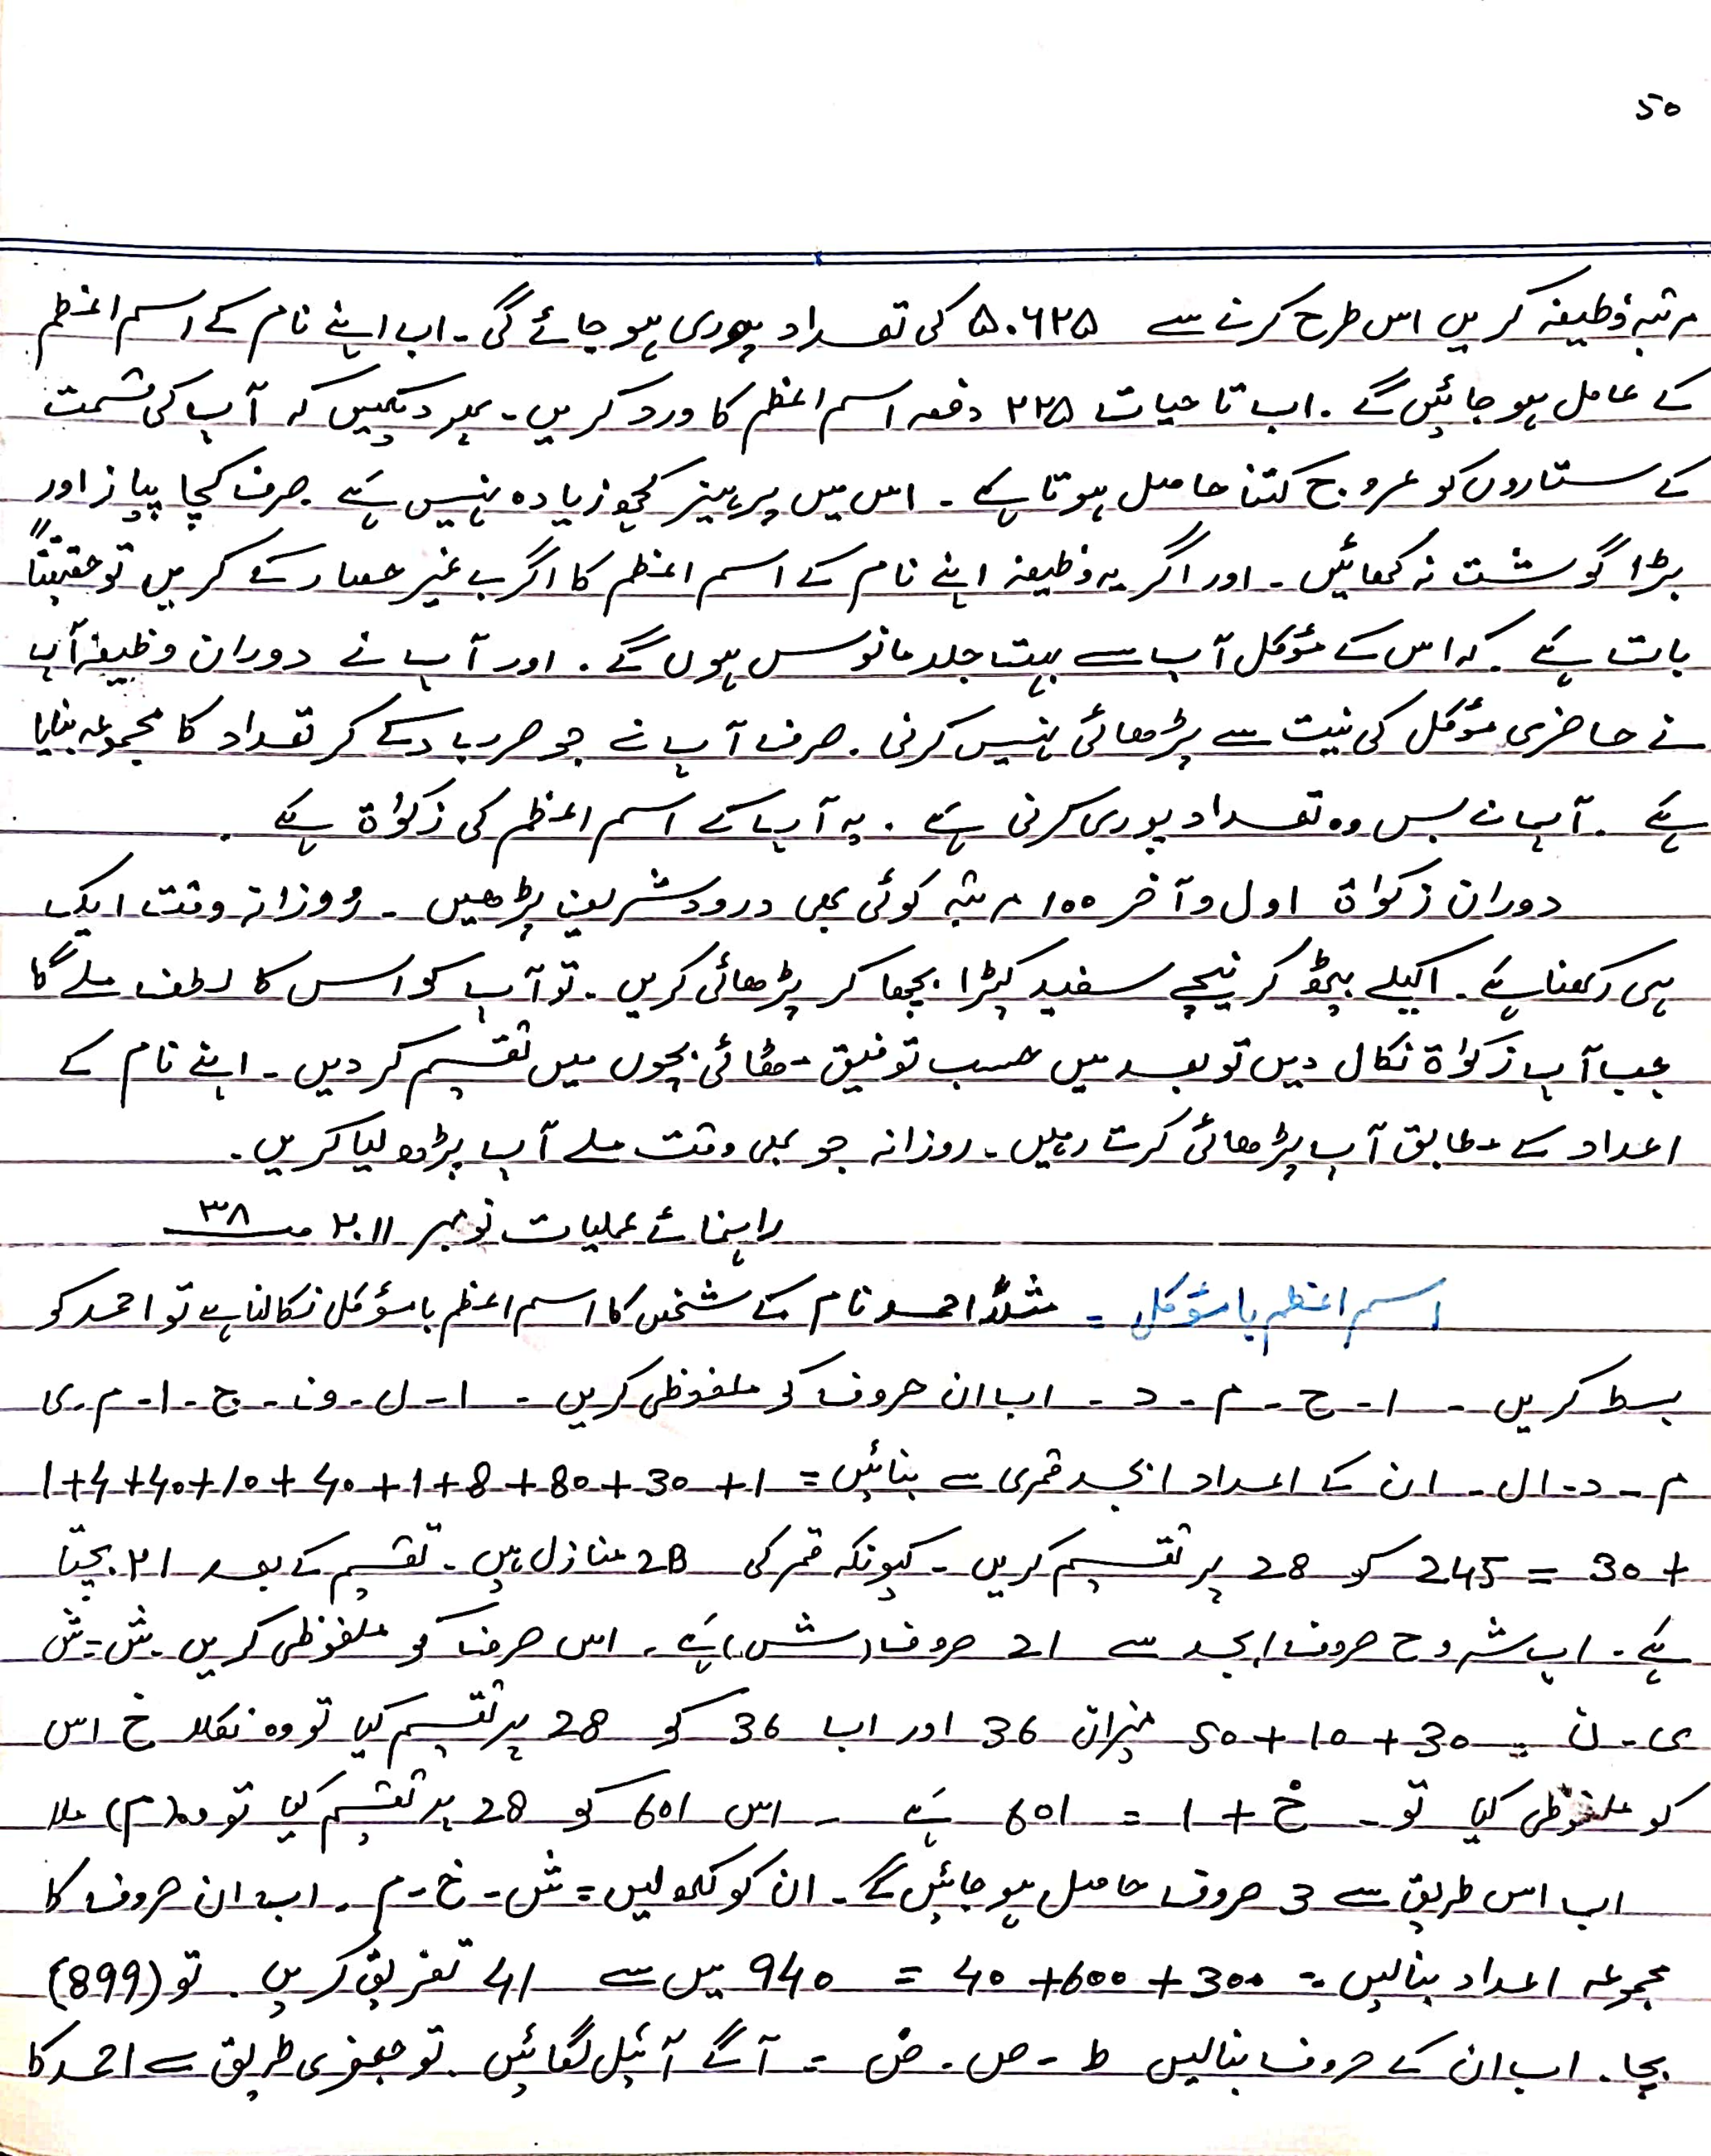 50
مرتبہ وظیفہ کریں اس طرح کرنے سے ۵۰۶۲۵ کی تعداد پوری ہو جائے گی۔ اب اپنے نام کے اسم اعظم
کے عامل ہو جائیں گے۔ اب تا حیات ۲۲۵ دفعہ اسم اعظم کا ورد کریں۔ پھر دیکھیں کہ آپ کی قسمت
کے ستاروں کو عروج کتنا حاصل ہوتا ہے۔ اس میں پرہیز کچھ زیادہ نہیں ہے۔ صرف کچا پیاز اور
بڑا گوشت نہ کھائیں۔ اور اگر یہ وظیفہ اپنے نام کے اسم اعظم کا اگر بے غیر حصار کے کریں تو حقیقتاً
بات ہے۔ کہ اس کے مؤکل آپ سے بہت جلد مانوس ہوں گے۔ اور آپ نے دوران وظیفہ آپ
نے حاضری مؤکل کی نیت سے پڑھائی نہیں کرنی۔ صرف آپ نے جو ضرب دے کر تعداد کا مجموعہ بنایا
ہے۔ آپ نے بس وہ تعداد پوری کرنی ہے۔ یہ آپ کے اسم اعظم کی زکوٰۃ ہے۔
دوران زکوٰۃ اول و آخر 100 مرتبہ کوئی بھی درود شریف پڑھیں۔ روزانہ وقت ایک
ہی رکھنا ہے۔ اکیلے بیٹھ کر نیچے سفید کپڑا بچھا کر پڑھائی کریں۔ تو آپ کو اس کا لطف ملے گا
جب آپ زکوٰۃ نکال دیں تو بعد میں حسب توفیق مٹھائی بچوں میں تقسیم کر دیں۔ اپنے نام کے
اعداد کے مطابق آپ پڑھائی کرتا رہیں۔ روزانہ جو بھی وقت ملے آپ پڑھ لیا کریں۔
راہنمائے عملیات نومبر ۲۰۱۱ صـ ۳۸
اسم اعظم با مؤکل = مثلاً احمد نام کے شخص کا اسم اعظم با مؤکل نکالنا ہے تو احمد کو
بسط کریں - ا - ح - م - د - اب ان حروف کو ملفوظی کریں - ا - ل - ف - ح - ا - م - ی
م - د - ا ل - ان کے اعداد ابجد قمری سے بنائیں = 1 + 30 + 80 + 8 + 1 + 40 + 10 + 40 + 4 + 1
+ 30 = 245 کو 28 پر تقسیم کریں۔ کیونکہ قمر کی 28 منازل ہیں۔ تقسیم کے بعد ۲۱ بچتا
ہے۔ اب شروع حروف ابجد سے 21 حروف (ش) ہے، اس حرف کو ملفوظی کریں۔ ش = ش
ی - ن = 30 + 10 + 50 میزان 36 اور اب 36 کو 28 پر تقسیم کیا تو وہ نکلا خ اس
کو ملفوظی کیا تو - خ + 1 = 601 ہے - اس 601 کو 28 پر تقسیم کیا تو وہ (م) ملا
اب اس طریق سے 3 حروف حاصل ہو جائیں گے۔ ان کو لکھ لیں = ش - خ - م۔ اب ان حروف کا
مجموعہ اعداد بنالیں = 300 + 600 + 40 = 940 میں سے 41 تفریق کریں۔ تو (899)
بچا۔ اب ان کے حروف بنالیں ط - ص - ض = آگے آئیل لگائیں۔ تو جعفری طریق سے احمد کا